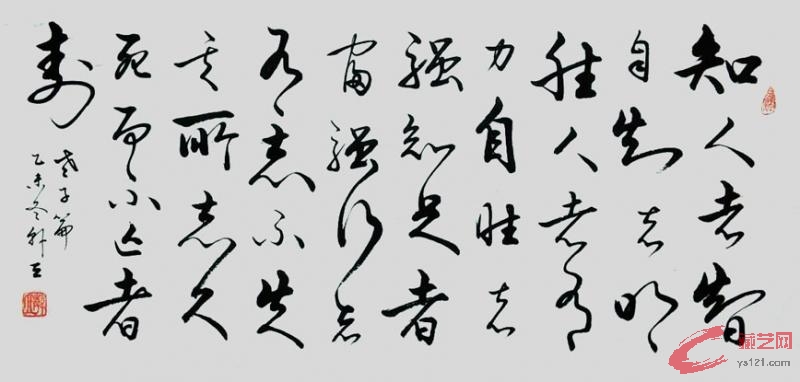 知人者智
自知者明
胜人者有
力自胜者
强知足者
富强行者
有志不失
其所者久
死而不亡者
寿
老子篇
乙未冬
藏艺网
ys121.com